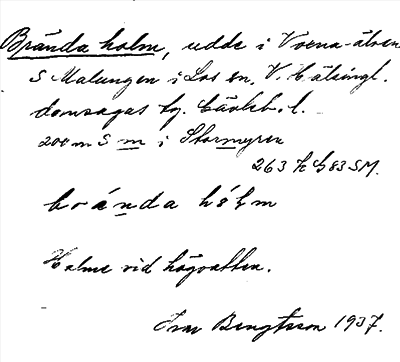 Brända holm, udde i Voxna-älven
S Malungen i Los sn, V. Hälsingl.
domsagas tg. Gävleb. l.
200 m S m i Stormyren
263 SM.
bránda hólm
Holme vid högvatten.
Bengtsson 1937.